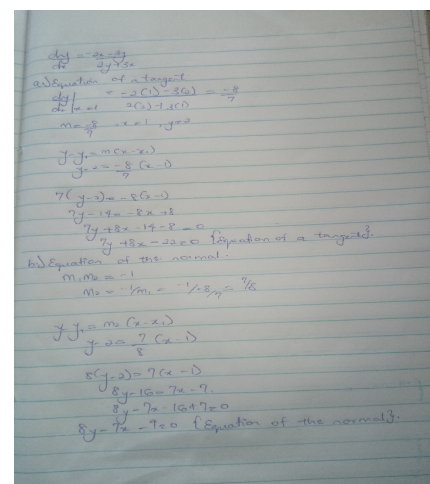 dy/dx = -2x-3y / 2y+3x
a.) Equation of a tangent
dy/dx | x=1 = -2(1)-3(2) / 2(2)+3(1) = -8/7
m = -8/7 , x=1 , y=2
y-y₁ = m(x-x₁)
y-2 = -8/7 (x-1)
7(y-2) = -8(x-1)
7y-14 = -8x+8
7y+8x-14-8=0
7y+8x-22=0 {Equation of a tangent}.
b.) Equation of the normal.
m₁m₂ = -1
m₂ = -1/m₁ = -1/-8/7 = 7/8
y-y₁ = m₂ (x-x₁)
y-2 = 7/8 (x-1)
8(y-2) = 7(x-1)
8y-16 = 7x-7.
8y-7x-16+7=0
8y-7x-9=0 {Equation of the normal}.